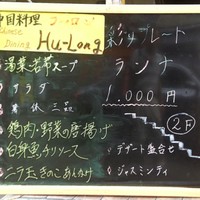 中国料理 フーロン
Chinese Dining Hu-Long
彩りプレート
ランチ
1,000円
湯葉若布スープ
サラダ
前菜三品
鶏肉・野菜の唐揚げ
白身魚チリソース
ニラ玉きのこあんかけ
2F
デザート盛合せ
ジャスミンティ